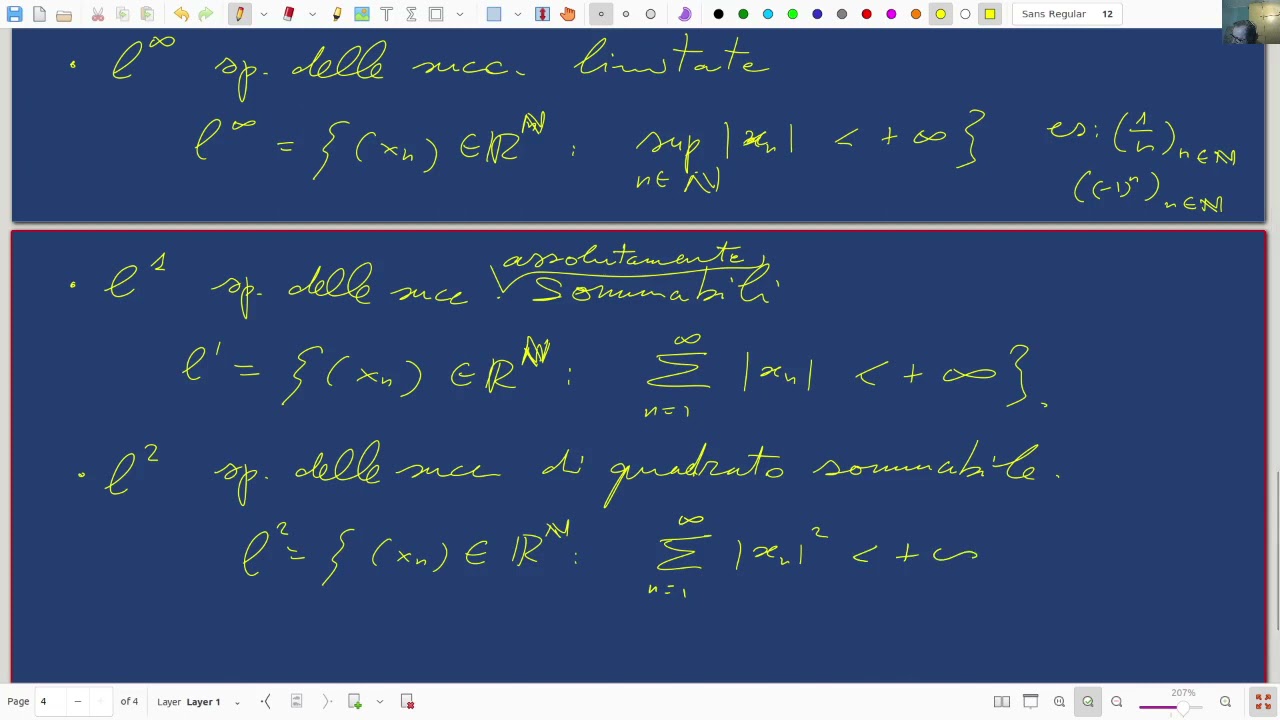 Sans Regular 12
• l^∞ sp. delle succ. limitate
l^∞ = { (xn) ∈ ℝ^ℕ : sup |xn| < +∞ } es: (1/n) n∈ℕ
n∈ℕ
((-1)^n) n∈ℕ
assolutamente
• l^1 sp. delle succ. sommabili
l^1 = { (xn) ∈ ℝ^ℕ : ∑_{n=1}^∞ |xn| < +∞ }.
• l^2 sp. delle succ di quadrato sommabile.
l^2 = { (xn) ∈ ℝ^ℕ : ∑_{n=1}^∞ |xn|^2 < +∞
Page 4 of 4 Layer Layer 1 207%